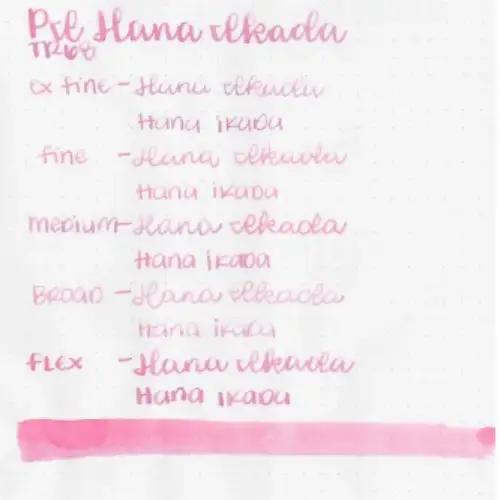 Hana Ikada
TR68
ex fine - Hana Ikada
Hana ikada
fine - Hana Ikada
Hana ikada
medium - Hana Ikada
Hana ikada
BROAD - Hana Ikada
Hana ikada
FLEX - Hana Ikada
Hana ikada